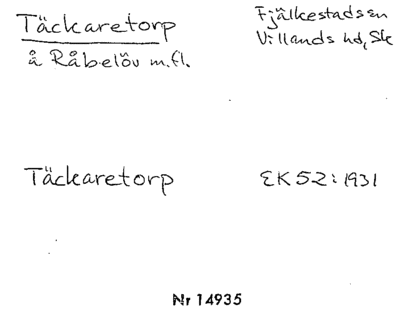 Täckaretorp
å Råbelöv m.fl.
Fjälkestads sn
Villands hd, Sk
Täckaretorp
EK 52:1931
Nr 14935